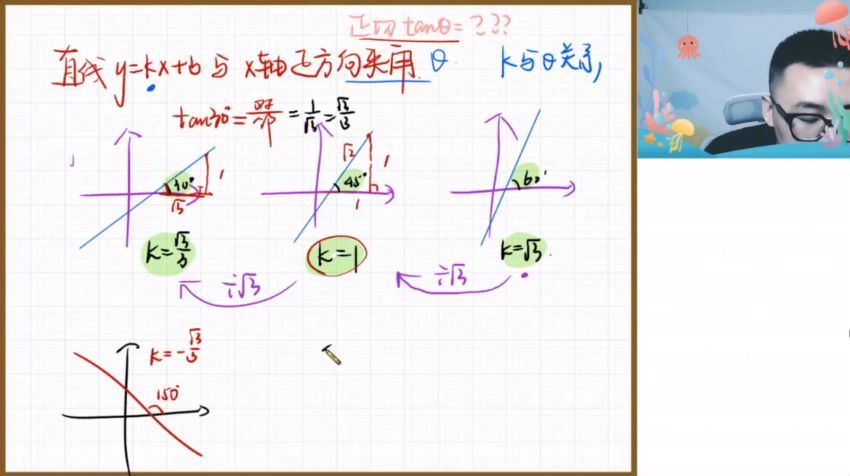 正切 tanθ= ???
直线 y=kx+b 与 x轴正方向夹角 θ k与θ关系,
tan30°=对/邻=1/√3=√3/3
30° 1 √3
√2 45° 1 1
60°
k=√3/3
k=1
k=√3
÷√3
÷√3
k=-√3/3
150°